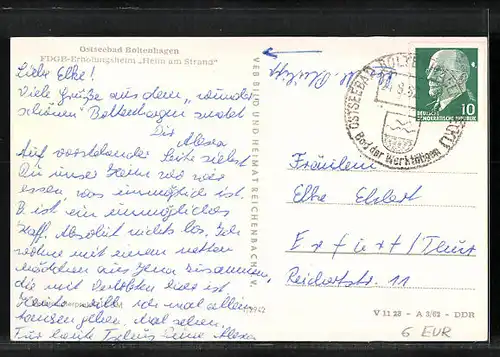 Ostseebad Boltenhagen
FDGB-Erholungsheim „Heim am Strand“
Liebe Elke!
Viele Grüße aus dem „wunder-
schönen“ Boltenhagen sendet
Dir Alexa
Auf vorstehender Seite siehst
Du unser Heim wo wir
essen was unmöglich ist.
B. ist ein unmögliches
Kaff. Absolut nichts los. Ich
wohne mit einem netten
Mädchen aus Jena zusammen,
die mit Verlobten hier ist
Heute will ich mal allein
tanzen gehen. Mal sehen.
Für heute Tschüs Deine Alexa
VEB BILD UND HEIMAT REICHENBACH I. V.
OSTSEEBAD BOLTENHAGEN
Bad der Werktätigen
DEUTSCHE
DEMOKRATISCHE REPUBLIK
10
Fräulein
Elke
Erfurt/Thür
Reichartstr. 11
V 11 28 - A 3/62 - DDR
6 EUR